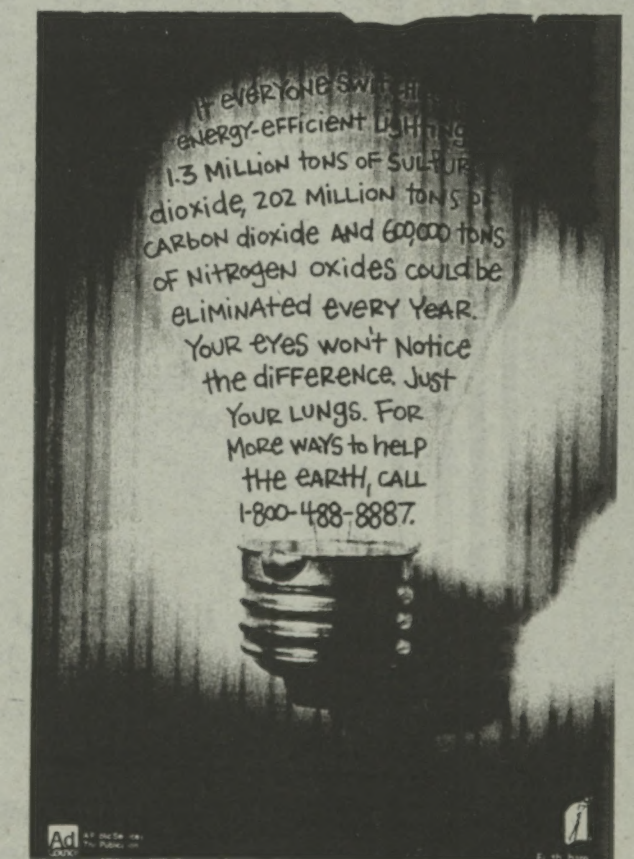 If EVERYONE
ENERGY-EFFICIENT LIGHTING
1.3 MILLION tONS OF SULFUR
dioxide, 202 MILLION tONS OF
CARbON dioxide ANd 600,000 tONS
OF NitROgEN oxides could be
ELIMINAtEd EVERY YEAR.
YOUR EYES WON't NOtiCE
thE diFFERENCE. JUSt
YOUR LUNGS. FOR
MORE WAYS to hELP
tHE EARTH, CALL
1-800-488-8887.
Ad